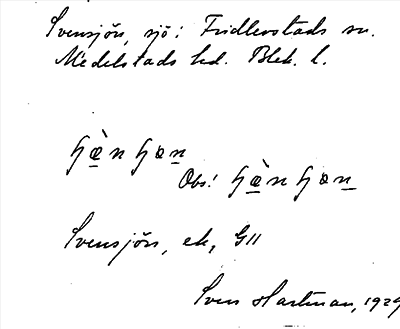 Svensjön, sjö i Fridlevstads sn.
Medelstads hd. Blek. l.
Obs!
Svensjön, ek, G11
Sven Hartman, 1929